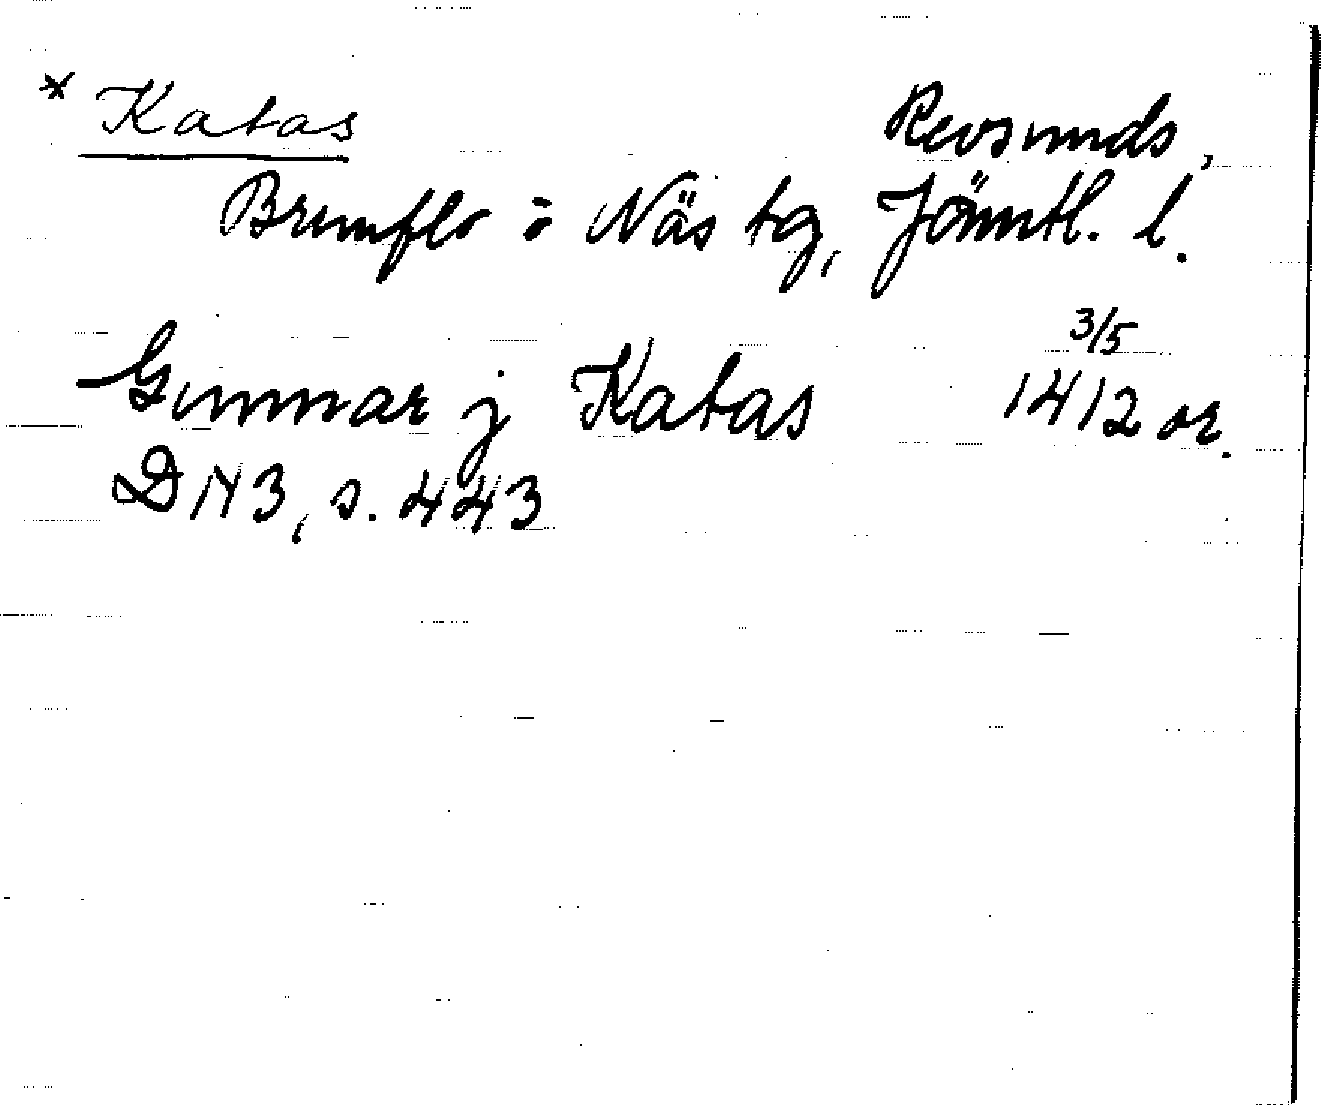 * Katas
Revsunds,
Brunflo o Näs tg, Jämtl. l.
Gunnar j Katas 3/5 1412 or.
DN 3, s. 443